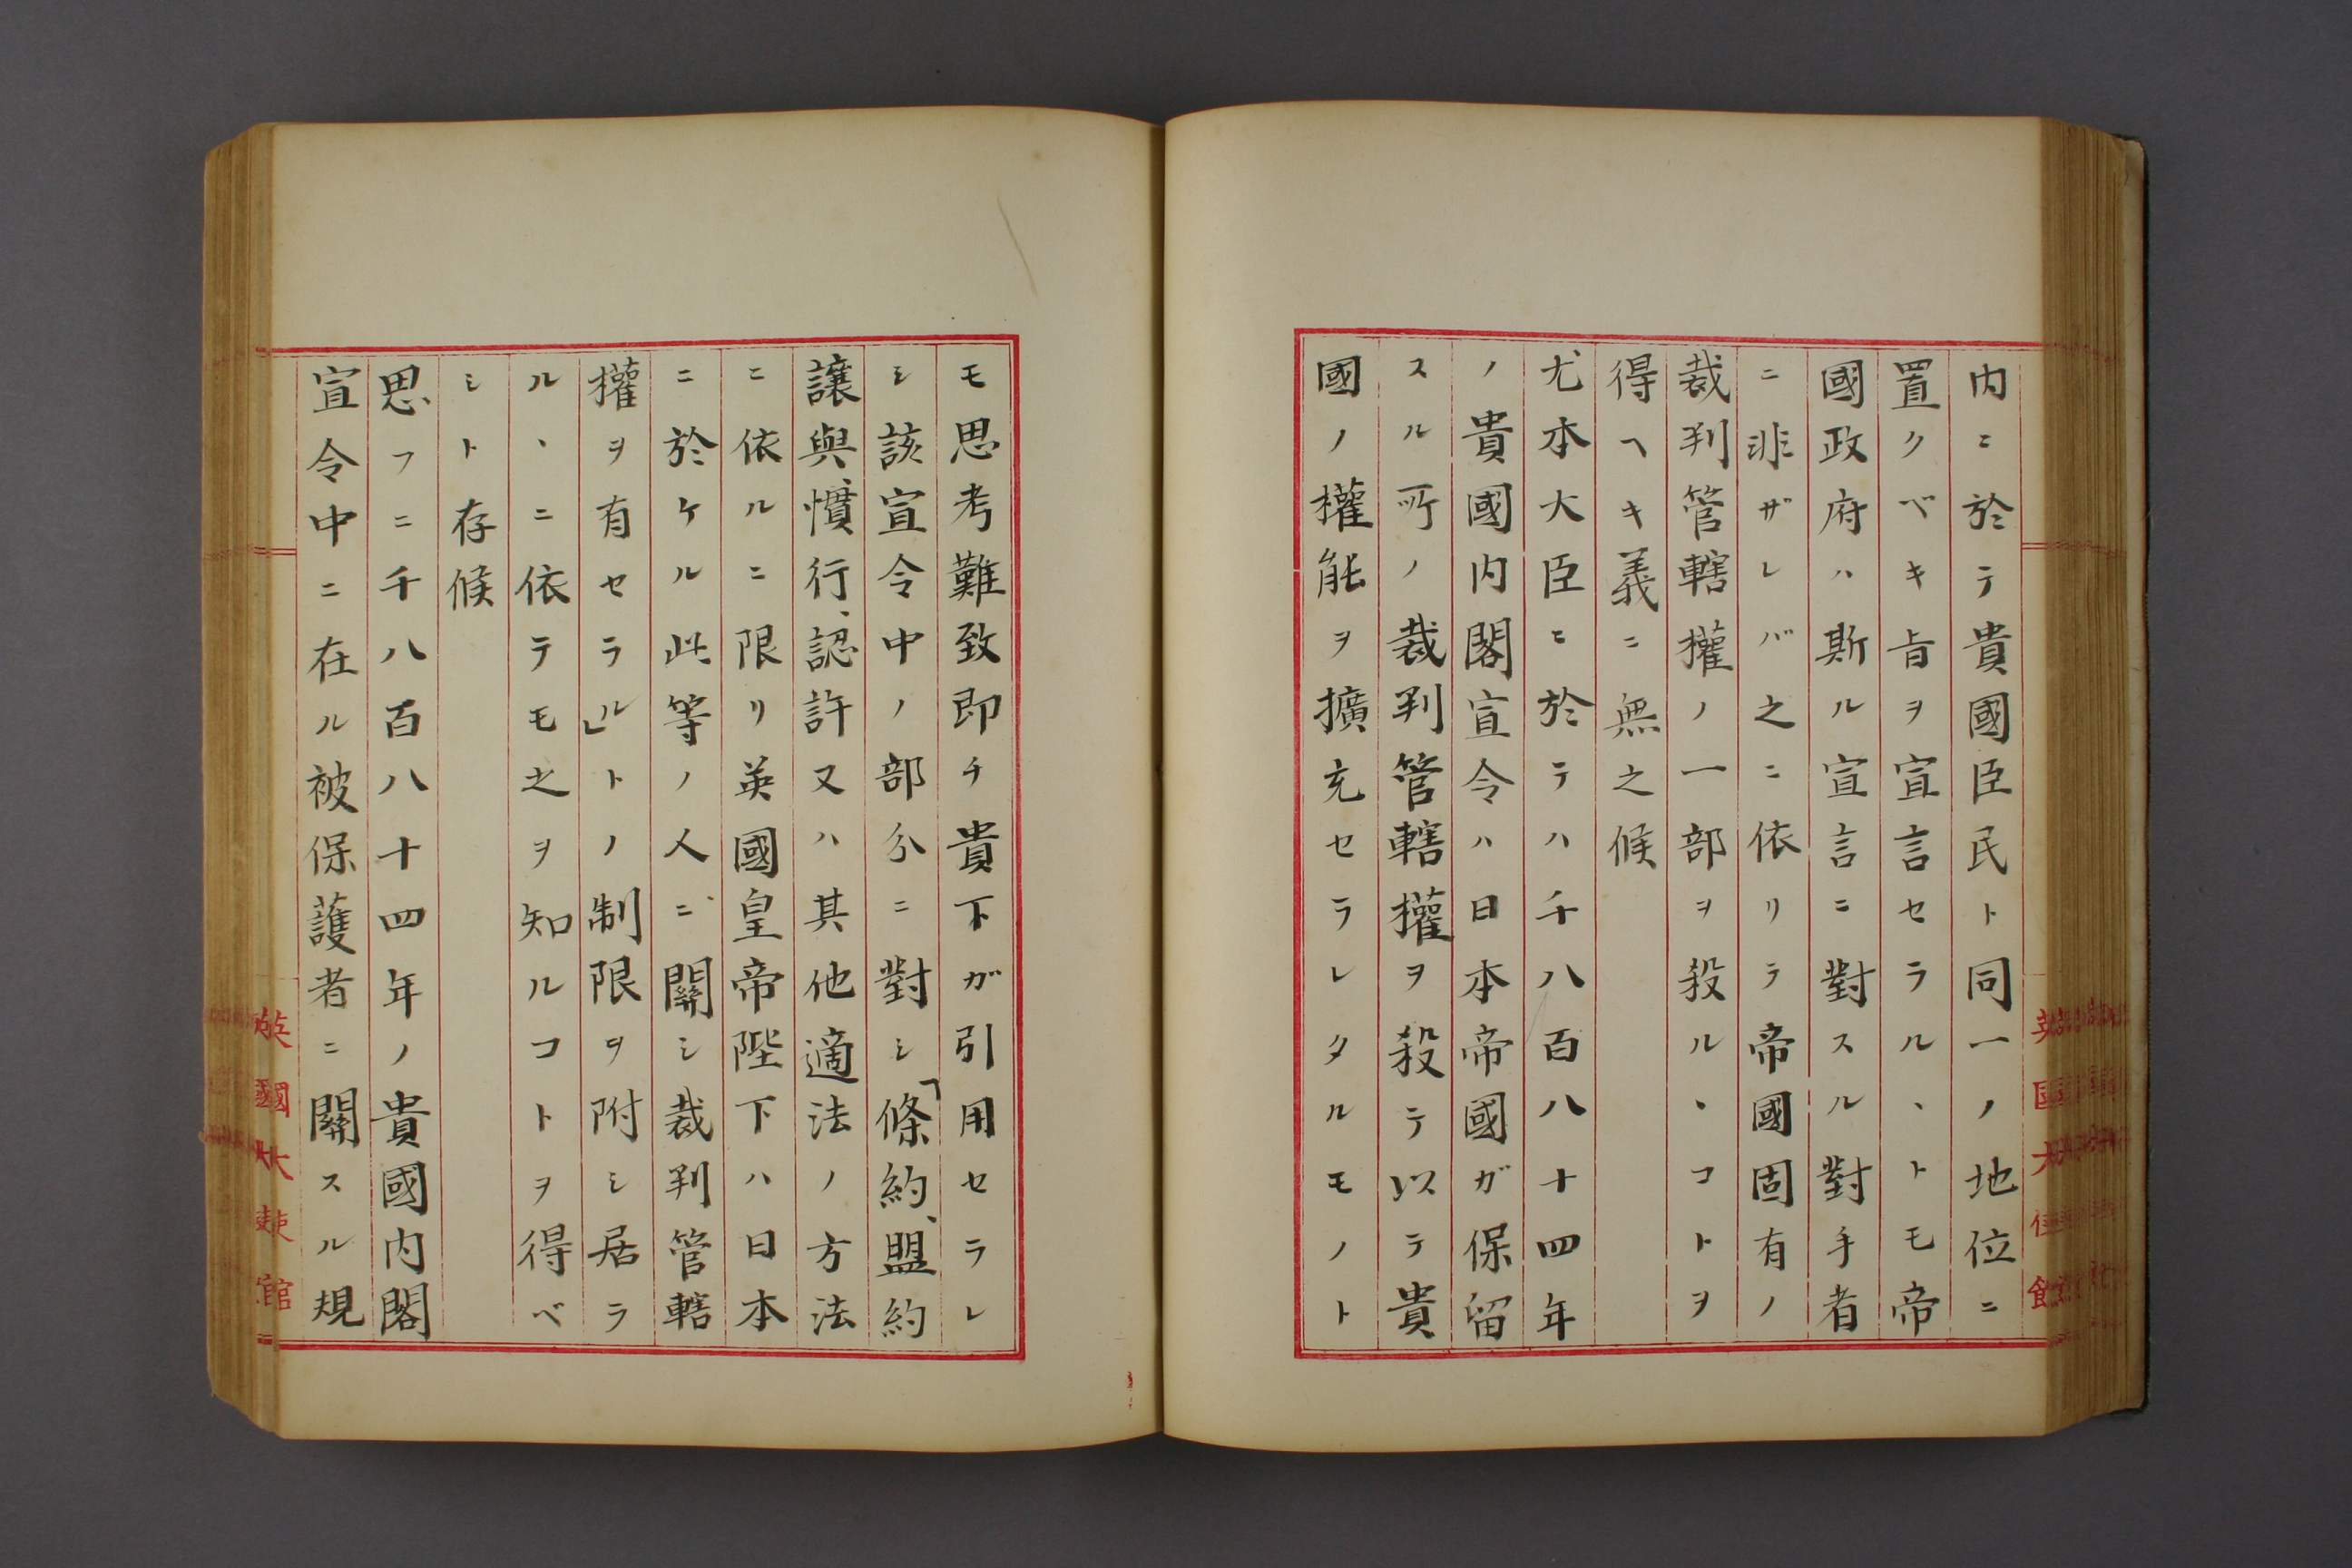 内ニ於テ貴國臣民ト同一ノ地位ニ
置クベキ旨ヲ宣言セラルヽトモ帝
國政府ハ斯ル宣言ニ對スル對手者
ニ非ザレバ之ニ依リテ帝國固有ノ
裁判管轄權ノ一部ヲ殺ルヽコトヲ
得ヘキ義ニ無之候
尤本大臣ニ於テハ千八百八十四年
ノ貴國内閣宣令ハ日本帝國ガ保留
スル所ノ裁判管轄權ヲ殺テ以テ貴
國ノ權能ヲ擴充セラレタルモノト
モ思考難致即チ貴下ガ引用セラレ
シ該宣令中ノ部分ニ對シ「條約、盟約
讓與、慣行、認許又ハ其他適法ノ方法
ニ依ルニ限リ英國皇帝陛下ハ日本
ニ於ケル此等ノ人ニ關シ裁判管轄
權ヲ有セラル」トノ制限ヲ附シ居ラ
ルヽニ依テモ之ヲ知ルコトヲ得ベ
シト存候
思フニ千八百八十四年ノ貴國内閣
宣令中ニ在ル被保護者ニ關スル規
英國大使館